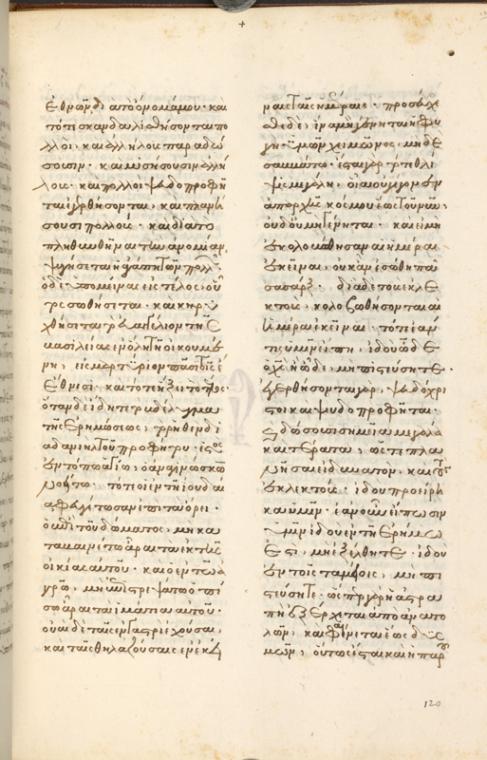 ἐθνῶν διὰ τὸ ὄνομά μου· καὶ
τότε σκανδαλισθήσονται πο
λλοὶ, καὶ ἀλλήλους παραδώ
σουσιν· καὶ μισήσουσιν ἀλλή
λους· καὶ πολλοὶ ψευδοπροφῆ
ται ἐγερθήσονται, καὶ πλανή
σουσι πολλούς· καὶ διὰ τὸ
πληθυνθῆναι τὴν ἀνομίαν,
ψυγήσεται ἡ ἀγάπη τῶν πολλῶν·
ὁ δὲ ὑπομείνας εἰς τέλος, οὗ
τος σωθήσεται· καὶ κηρυ
χθήσεται τὸ εὐαγγέλιον τῆς
βασιλείας ἐν ὅλῃ τῇ οἰκουμέ
νῃ, εἰς μαρτύριον πᾶσι τοῖς
ἔθνεσι· καὶ τότε ἥξει τὸ τέλος·
ὅταν δὲ ἴδητε τὸ βδέλυγμα
τῆς ἐρημώσεως, τὸ ῥηθὲν διὰ
δανιὴλ τοῦ προφήτου, ἑστὸς
ἐν τόπω ἁγίω, ὁ ἀναγινώσκων
νοείτω, τότε οἱ ἐν τῇ ἰουδαία
φευγέτωσαν ἐπὶ τὰ ὄρει·
ὁ ἐπὶ τοῦ δώματος, μὴ κα
ταβαινέτω ἆραι τὰ ἐκ τῆς
οἰκίας αὐτοῦ· καὶ ὁ ἐν τῶ ἀ
γρῶ, μὴ ἐπιστρεψάτω ὀπί
σω ἆραι τὰ ἱμάτια αὐτοῦ·
οὐαὶ δὲ ταῖς ἐν γαστρὶ ἐχούσαις,
καὶ ταῖς θηλαζούσαις ἐν ἐκεί
ναις ταῖς ἡμέραις· προσεύχε
σθε δὲ, ἵνα μὴ γένηται ἡ φυ
γὴ ὑμῶν χειμῶνος, μηδὲ
σαββάτω· ἔσται γὰρ τότε θλί
ψις μεγάλη, οἵα οὐ γέγονεν
ἀπαρχῆς κόσμου ἕως τοῦ νῦν,
οὐδοὐμὴ γένηται· καὶ εἰ μὴ
ἐκολοβώθησαν αἱ ἡμέραι
ἐκεῖναι, οὐκ ἂν ἐσώθη πᾶ
σα σάρξ· διὰ δὲ τοὺς ἐκλε
κτοὺς, κολοβωθήσονται αἱ
ἡμέραι ἐκεῖναι· τότε ἐάν
τις ὑμῖν εἴπη, ἰδοὺ ὧδε ὁ
χς ἢ ὧδε, μὴ πιστεύσητε·
ἐγερθήσονται γὰρ, ψευδόχρι
στοι καὶ ψευδοπροφῆται·
καὶ δώσουσι σημεῖα μεγάλα
καὶ τέρατα, ὥστε πλα
νῆσαι εἰ δυνατὸν, καὶ τοὺς
ἐκλεκτούς· ἰδοὺ προείρη
κα ὑμῖν· ἐὰν οὖν εἴπωσιν
ὑμῖν ἰδοὺ ἐν τῆ ἐρήμω
ἐστι, μὴ ἐξέλθητε· ἰδοὺ
ἐν τοῖς ταμείοις, μὴ πι
στεύσητε· ὥσπερ γὰρ ἡ ἀστρα
πὴ ἐξέρχεται ἀπὸ ἀνατο
λῶν, καὶ φαίνεται ἕως δυ
σμῶν, οὕτως ἔσται καὶ ἡ παρου
120